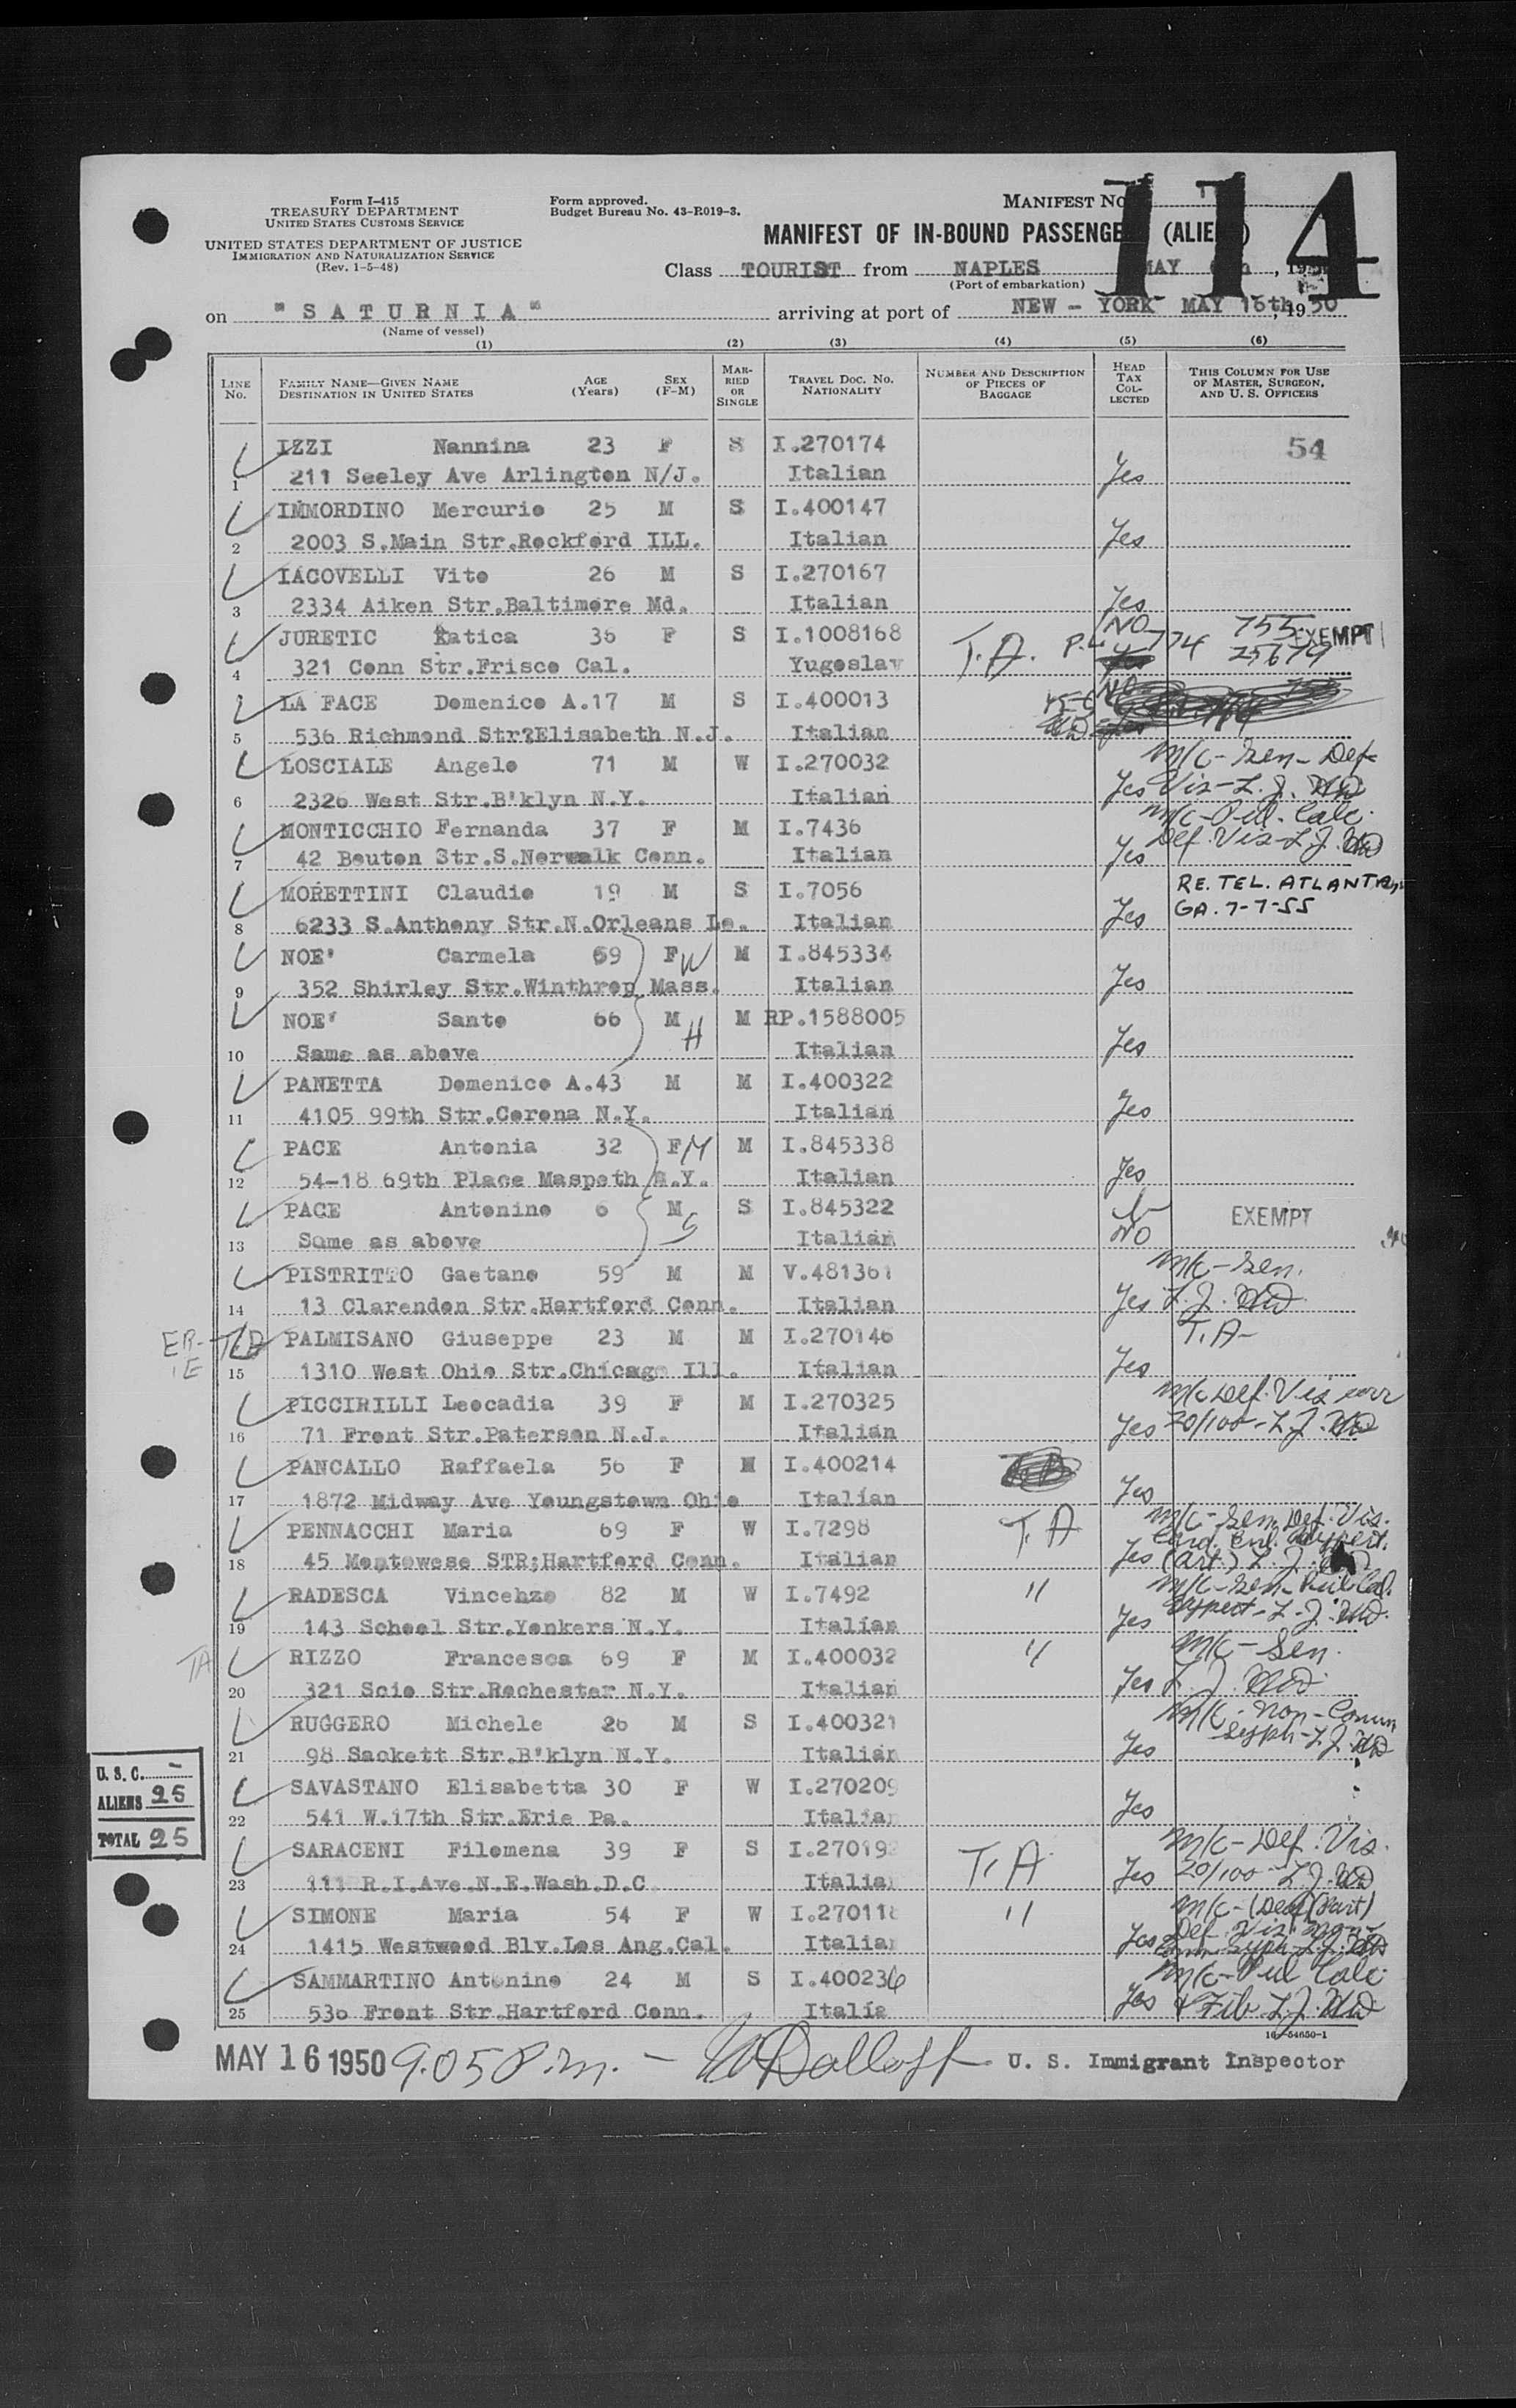 Form I-415
TREASURY DEPARTMENT
UNITED STATES CUSTOMS SERVICE
UNITED STATES DEPARTMENT OF JUSTICE
IMMIGRATION AND NATURALIZATION SERVICE
(Rev. 1-5-48)
Form approved.
Budget Bureau No. 43-R019-3.
MANIFEST NO.
114
MANIFEST OF IN-BOUND PASSENGERS (ALIENS)
Class TOURIST from NAPLES MAY , 19
(Port of embarkation)
on "SATURNIA" arriving at port of NEW - YORK MAY 16th, 1950
(Name of vessel)
(1) (2) (3) (4) (5) (6)
LINE No. FAMILY NAME—GIVEN NAME DESTINATION IN UNITED STATES AGE (Years) SEX (F-M) MARRIED OR SINGLE TRAVEL DOC. NO. NATIONALITY NUMBER AND DESCRIPTION OF PIECES OF BAGGAGE HEAD TAX COLLECTED THIS COLUMN FOR USE OF MASTER, SURGEON, AND U. S. OFFICERS
IZZI Nannina 23 F S I.270174 54
1 211 Seeley Ave Arlington N/J. Italian Yes
IMMORDINO Mercurio 25 M S I.400147
2 2003 S.Main Str.Rockford ILL. Italian Yes
IACOVELLI Vito 26 M S I.270167
3 2334 Aiken Str.Baltimore Md. Italian Yes
JURETIC Katica 36 F S I.1008168 T.A. P.L. 774 NO 755 EXEMPT
4 321 Conn Str.Frisco Cal. Yugoslav 25679
LA FACE Domenico A.17 M S I.400013 NO
5 536 Richmond Str?Elisabeth N.J. Italian
LOSCIALE Angelo 71 M W I.270032 M/C-Sen-Def
6 2326 West Str.B'klyn N.Y. Italian Yes Vis-L.J. MD
MONTICCHIO Fernanda 37 F M I.7436 M/C-Pul. Calc.
7 42 Bouton Str.S.Norwalk Conn. Italian Yes Def. Vis-L.J. MD
MORETTINI Claudio 19 M S I.7056 RE. TEL. ATLANTA,
8 6233 S.Anthony Str.N.Orleans Lo. Italian Yes GA. 7-7-55
NOE' Carmela 69 F W M I.845334
9 352 Shirley Str.Winthrop Mass. Italian Yes
NOE' Santo 66 M H M RP.1588005
10 Same as above Italian Yes
PANETTA Domenico A.43 M M I.400322
11 4105 99th Str.Corona N.Y. Italian Yes
PACE Antonia 32 F M M I.845338
12 54-18 69th Place Maspeth N.Y. Italian Yes
PACE Antonino 6 M S S I.845322 EXEMPT
13 Same as above Italian NO
PISTRITTO Gaetano 59 M M V.481361 M/C-Sen.
14 13 Clarendon Str.Hartford Conn. Italian Yes L.J. MD
PALMISANO Giuseppe 23 M M I.270146 T.A-
15 1310 West Ohio Str.Chicago Ill. Italian Yes
PICCIRILLI Leocadia 39 F M I.270325 M/C Def. Vis
16 71 Front Str.Paterson N.J. Italian Yes 20/100-L.J. MD
PANCALLO Raffaela 56 F M I.400214
17 1872 Midway Ave Youngstown Ohio Italian Yes
PENNACCHI Maria 69 F W I.7298 T.A M/C-Sen, Def. Vis.
Card. Enl. Hypert.
18 45 Montowese STR;Hartford Conn. Italian Yes (art.) L.J.
RADESCA Vincenzo 82 M W I.7492 " M/C-Sen-Pul Cal.
19 143 School Str.Yonkers N.Y. Italian Yes Hypert-L.J. MD.
RIZZO Francesca 69 F M I.400032 " M/C-Sen.
TA
20 321 Scio Str.Rochester N.Y. Italian Yes L.J. MD
RUGGERO Michele 26 M S I.400321 M/C-Non-Comm
Syph-L.J. MD
21 98 Sackett Str.B'klyn N.Y. Italian Yes
SAVASTANO Elisabetta 30 F W I.270209
22 541 W.17th Str.Erie Pa. Italian Yes
SARACENI Filomena 39 F S I.27019 T.A M/C-Def. Vis.
23 111 R.I.Ave.N.E.Wash.D.C Italia Yes 20/100-L.J. MD
SIMONE Maria 54 F W I.270118 " M/C-(Deaf (Part)
24 1415 Westwood Blv.Los Ang.Cal. Italia Yes Def. Vis. Non-
Comm-Syph-L.J. MD
SAMMARTINO Antonino 24 M S I.400236 M/C-Pul Calc.
25 536 Front Str.Hartford Conn. Italia Yes & Fib L.J. MD
U. S. C. -
ALIENS 25
TOTAL 25
16-54650-1
MAY 16 1950 9.05 P.m. - U. S. Immigrant Inspector